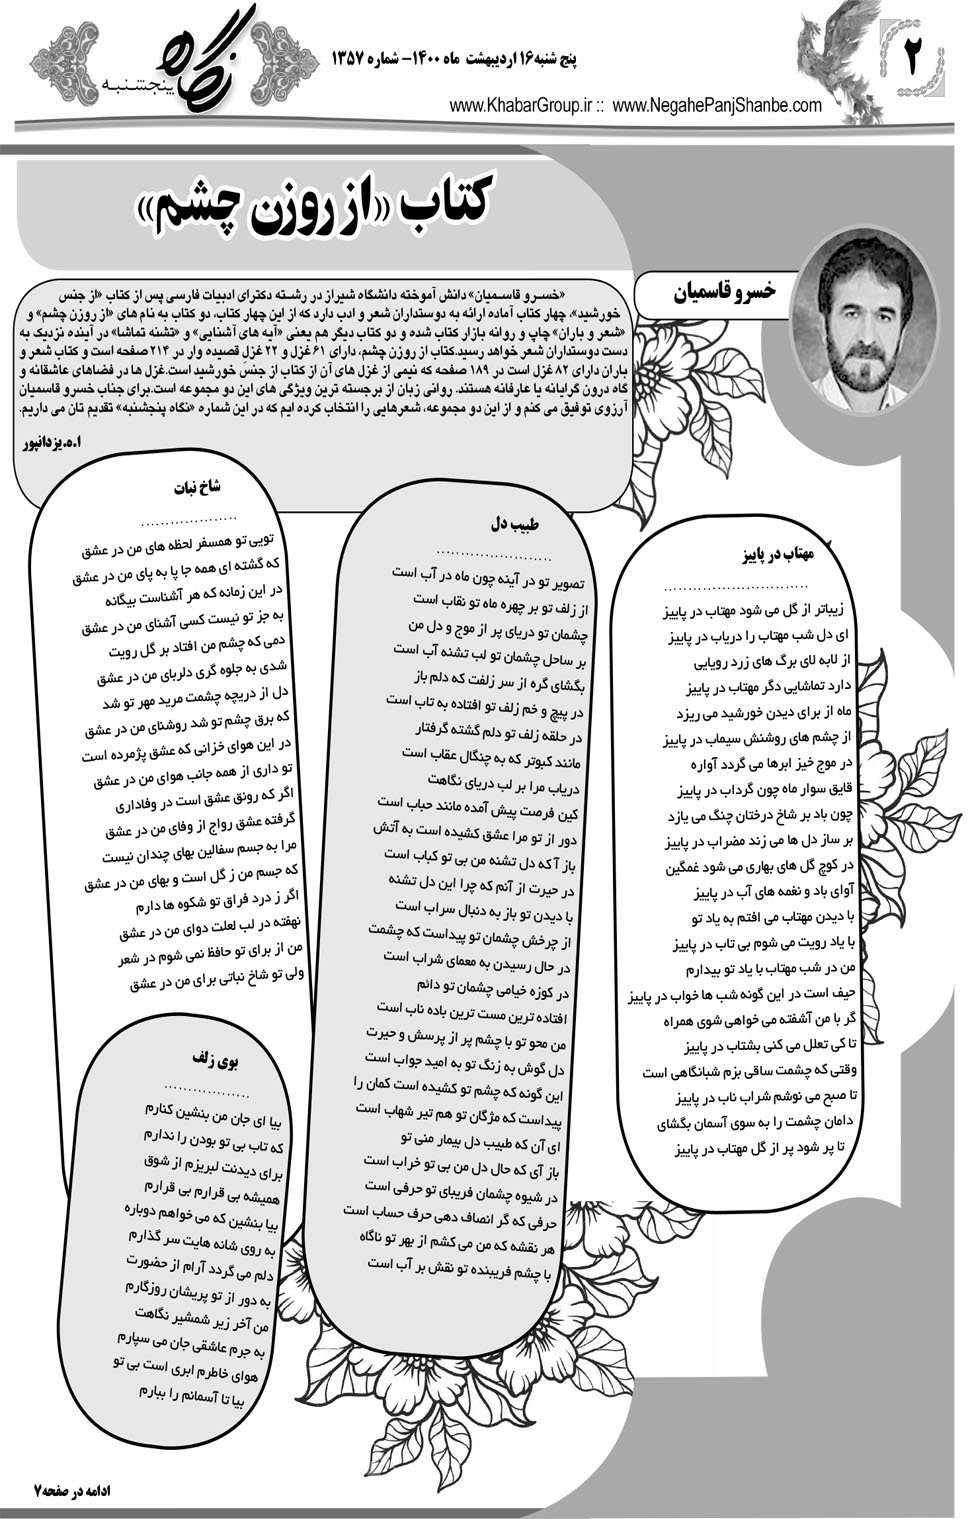 ۲
پنج شنبه۱۶ اردیبهشت ماه ۱۴۰۰- شماره ۱۳۵۷
www.KhabarGroup.ir :: www.NegahePanjShanbe.com
نگاه
پنجشنبه
کتاب «از روزن چشم»
خسرو قاسمیان
«خسرو قاسمیان» دانش آموخته دانشگاه شیراز در رشته دکترای ادبیات فارسی پس از کتاب «از جنس
خورشید»، چهار کتاب آماده ارائه به دوستداران شعر و ادب دارد که از این چهار کتاب، دو کتاب به نام های «از روزن چشم» و
«شعر و باران» چاپ و روانه بازار کتاب شده و دو کتاب دیگر هم یعنی «آیه های آشنایی» و «تشنه تماشا» در آینده نزدیک به
دست دوستداران شعر خواهد رسید.کتاب از روزن چشم، دارای ۶۱ غزل و ۲۲ غزل قصیده وار در ۲۱۴ صفحه است و کتاب شعر و
باران دارای ۸۲ غزل است در ۱۸۹ صفحه که نیمی از غزل های آن از کتاب از جنس خورشید است.غزل ها در فضاهای عاشقانه و
گاه درون گرایانه یا عارفانه هستند. روانی زبان از برجسته ترین ویژگی های این دو مجموعه است.برای جناب خسرو قاسمیان
آرزوی توفیق می کنم و از این دو مجموعه، شعرهایی را انتخاب کرده ایم که در این شماره «نگاه پنجشنبه» تقدیم تان می داریم.
ا.ه.یزدانپور
مهتاب در پاییز
............................
زیباتر از گل می شود مهتاب در پاییز
ای دل شب مهتاب را دریاب در پاییز
از لابه لای برگ های زرد رویایی
دارد تماشایی دگر مهتاب در پاییز
ماه از برای دیدن خورشید می ریزد
از چشم های روشنش سیماب در پاییز
در موج خیز ابرها می گردد آواره
قایق سوار ماه چون گرداب در پاییز
چون باد بر شاخ درختان چنگ می یازد
بر ساز دل ها می زند مضراب در پاییز
در کوچ گل های بهاری می شود غمگین
آوای باد و نغمه های آب در پاییز
با دیدن مهتاب می افتم به یاد تو
با یاد رویت می شوم بی تاب در پاییز
من در شب مهتاب با یاد تو بیدارم
حیف است در این گونه شب ها خواب در پاییز
گر با من آشفته می خواهی شوی همراه
تا کی تعلل می کنی بشتاب در پاییز
وقتی که چشمت ساقی بزم شبانگاهی است
تا صبح می نوشم شراب ناب در پاییز
دامان چشمت را به سوی آسمان بگشای
تا پر شود پر از گل مهتاب در پاییز
طبیب دل
.......................
تصویر تو در آینه چون ماه در آب است
از زلف تو بر چهره ماه تو نقاب است
چشمان تو دریای پر از موج و دل من
بر ساحل چشمان تو لب تشنه آب است
بگشای گره از سر زلفت که دلم باز
در پیچ و خم زلف تو افتاده به تاب است
در حلقه زلف تو دلم گشته گرفتار
مانند کبوتر که به چنگال عقاب است
دریاب مرا بر لب دریای نگاهت
کین فرصت پیش آمده مانند حباب است
دور از تو مرا عشق کشیده است به آتش
باز آ که دل تشنه من بی تو کباب است
در حیرت از آنم که چرا این دل تشنه
با دیدن تو باز به دنبال سراب است
از چرخش چشمان تو پیداست که چشمت
در حال رسیدن به معمای شراب است
در کوزه خیامی چشمان تو دائم
افتاده ترین مست ترین باده ناب است
من محو تو با چشم پر از پرسش و حیرت
دل گوش به زنگ تو به امید جواب است
این گونه که چشم تو کشیده است کمان را
پیداست که مژگان تو هم تیر شهاب است
ای آن که طبیب دل بیمار منی تو
باز آی که حال دل من بی تو خراب است
در شیوه چشمان فریبای تو حرفی است
حرفی که گر انصاف دهی حرف حساب است
هر نقشه که من می کشم از بهر تو ناگاه
با چشم فریبنده تو نقش بر آب است
شاخ نبات
....................
تویی تو همسفر لحظه های من در عشق
که گشته ای همه جا پا به پای من در عشق
در این زمانه که هر آشناست بیگانه
به جز تو نیست کسی آشنای من در عشق
دمی که چشم من افتاد بر گل رویت
شدی به جلوه گری دلربای من در عشق
دل از دریچه چشمت مرید مهر تو شد
که برق چشم تو شد روشنای من در عشق
در این هوای خزانی که عشق پژمرده است
تو داری از همه جانب هوای من در عشق
اگر که رونق عشق است در وفاداری
گرفته عشق رواج از وفای من در عشق
مرا به جسم سفالین بهای چندان نیست
که جسم من ز گل است و بهای من در عشق
اگر ز درد فراق تو شکوه ها دارم
نهفته در لب لعلت دوای من در عشق
من از برای تو حافظ نمی شوم در شعر
ولی تو شاخ نباتی برای من در عشق
بوی زلف
..................
بیا ای جان من بنشین کنارم
که تاب بی تو بودن را ندارم
برای دیدنت لبریزم از شوق
همیشه بی قرارم بی قرارم
بیا بنشین که می خواهم دوباره
به روی شانه هایت سر گذارم
دلم می گردد آرام از حضورت
به دور از تو پریشان روزگارم
من آخر زیر شمشیر نگاهت
به جرم عاشقی جان می سپارم
هوای خاطرم ابری است بی تو
بیا تا آسمانم را ببارم
ادامه در صفحه۷